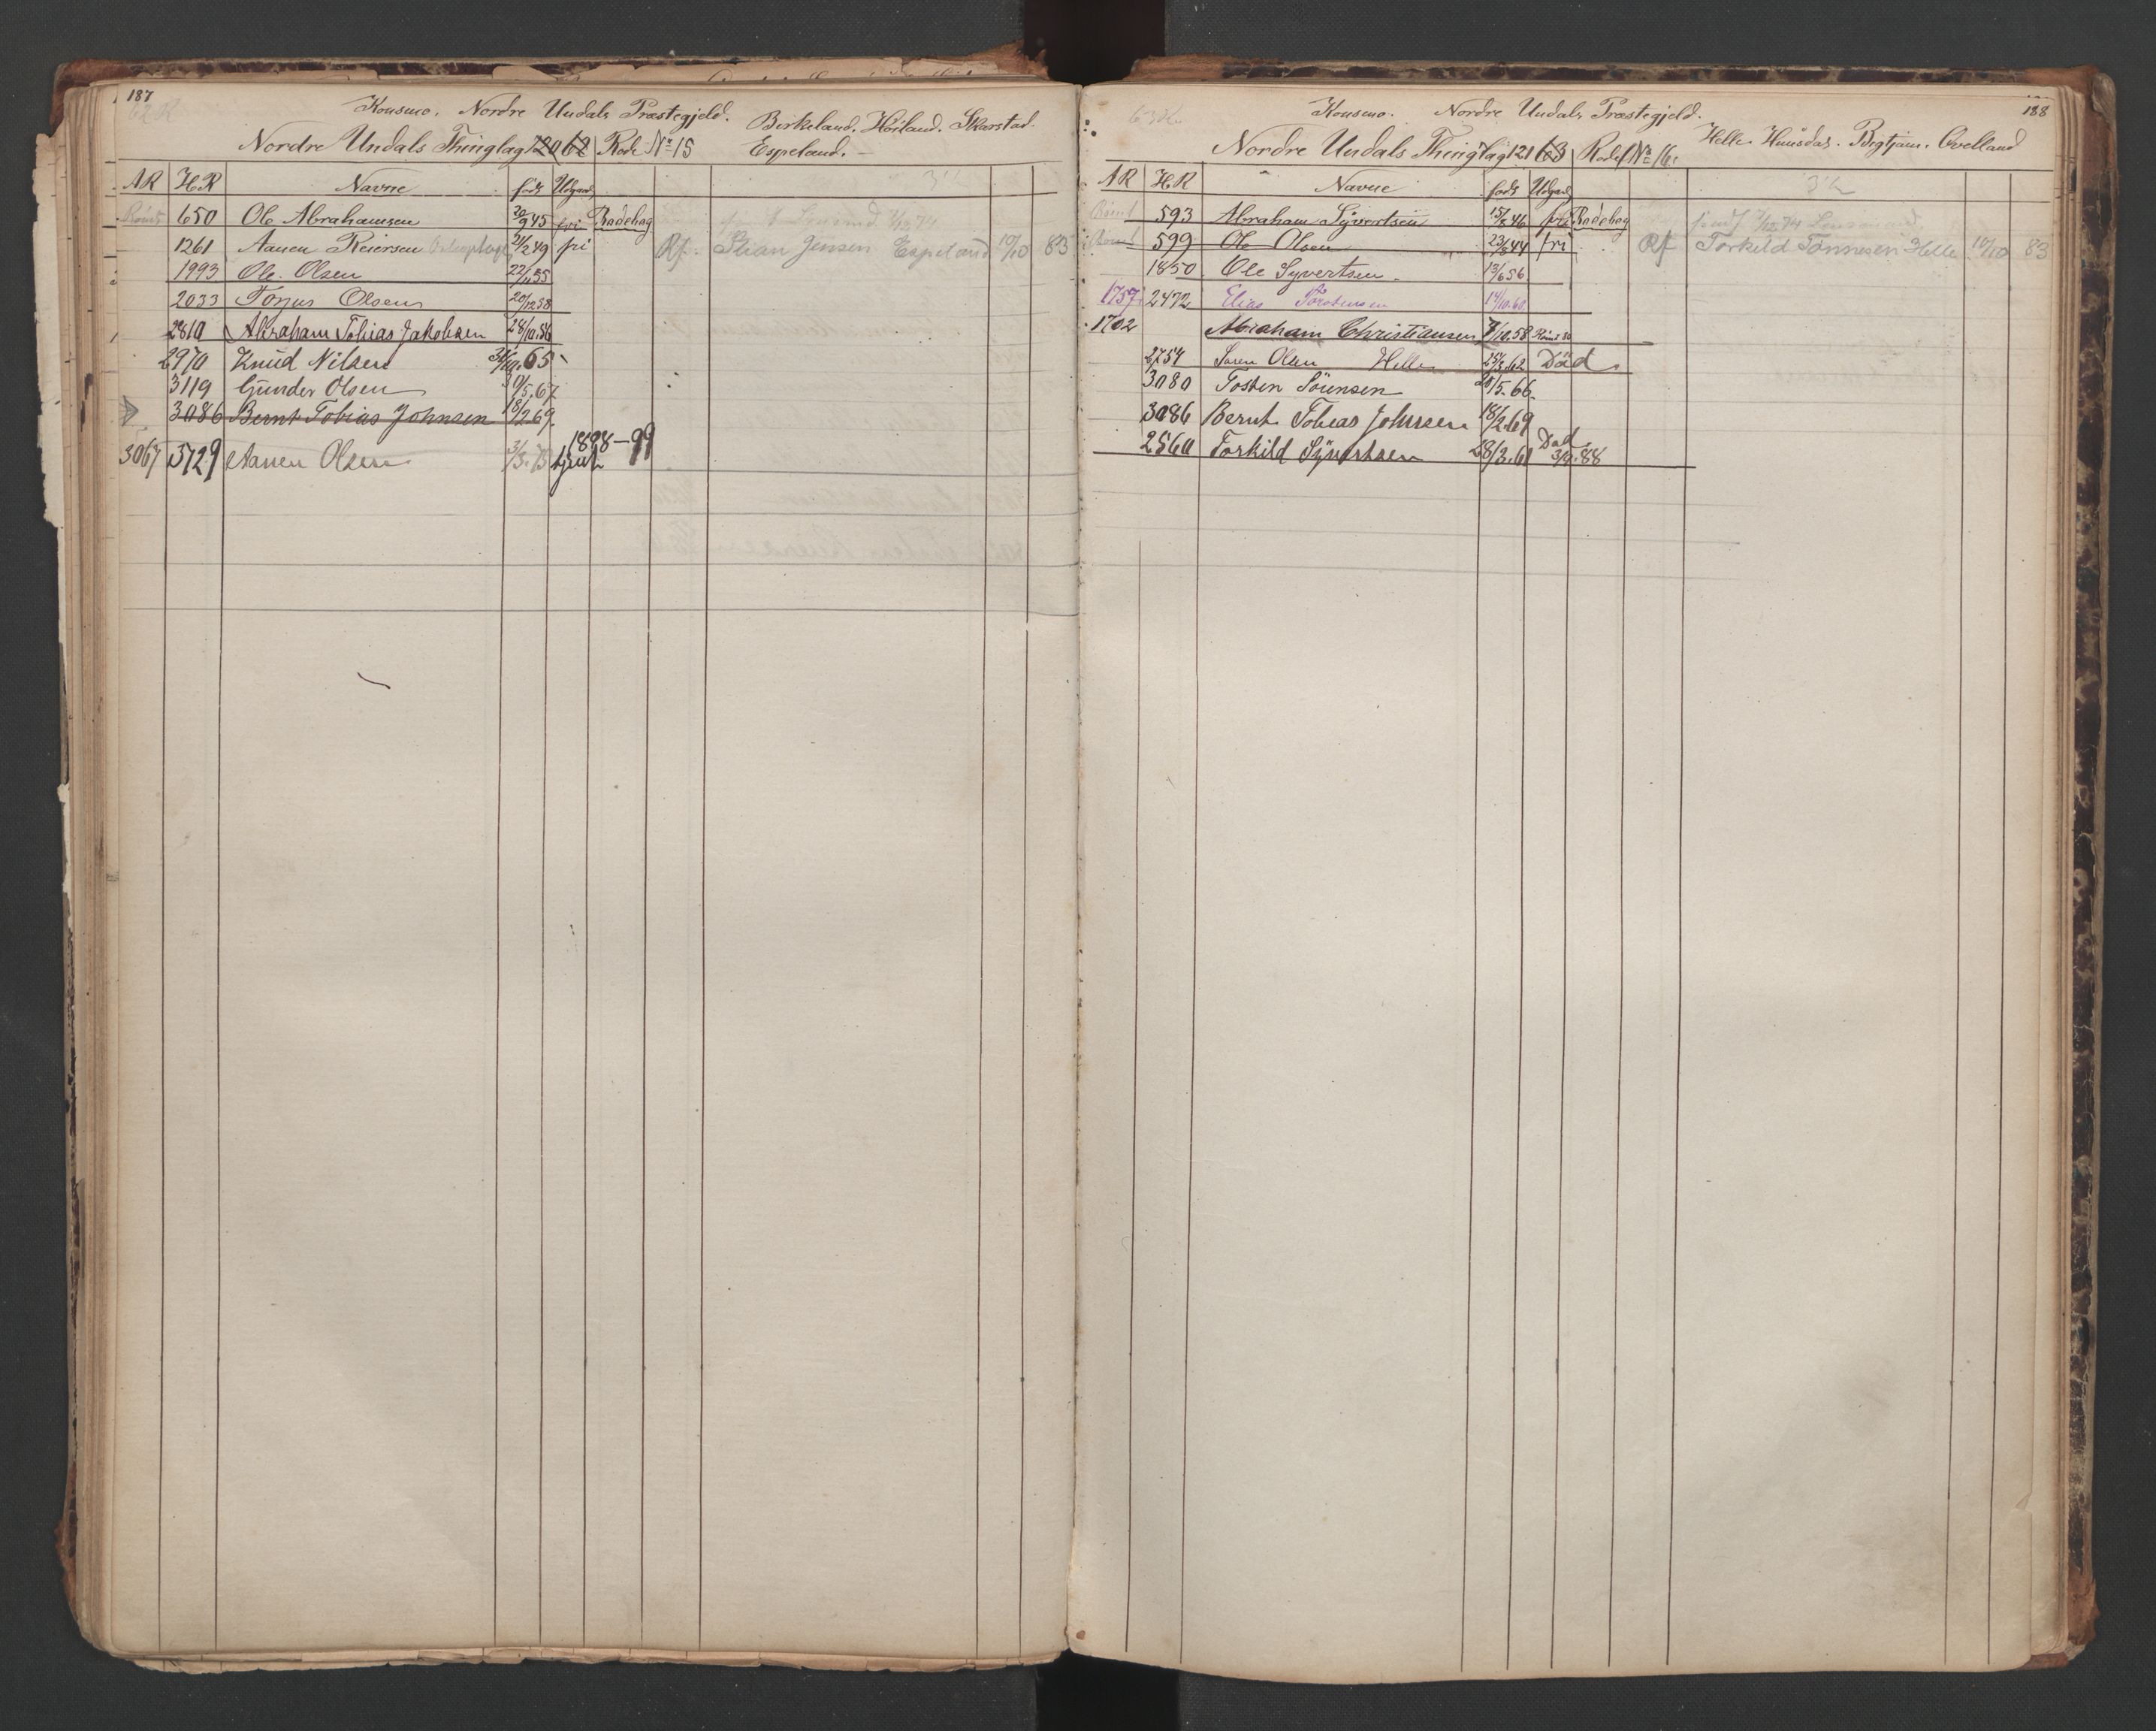 187
62 R
Konsmo. Nordre Undals Præstegjeld. Birkeland. Höiland. Skarstad.
Nordre Undals Thinglag 120 62 Rode No 15 Espeland.
AR HR Navne födt Udgaaet
650 Ole Abrahamsen 20/9 45 fri Badebog
1261 Aanen Reiersen 21/2 49 fri Rf. Stian Jensen Espeland 10/10 83
1993 Ole Olsen 22/11 55
2033 Torjus Olsen 20/12 58
2810 Abraham Tobias Jakobsen 28/10.56
2970 Knud Nilsen 31/10.65
3119 Gunder Olsen 30/5.67
3086 Bernt Tobias Johnsen 18/2.69
3067 3729 Aanen Olsen 3/3.75 tjent 1898-99
188
Konsmo. Nordre Undals Præstegjeld.
Nordre Undals Thinglag 121 63 Rode No 16. Helle. Huusdal. Bigtjam. Ovelland
AR HR Navne födt Udgaaet
593 Abraham Syvertsen 15/8 46 fri Badebog
599 Ole Olsen 23/8 44 fri Rf Torkild Tönnesen Helle 10/10 83
1850 Ole Syvertsen 13/6 56
1757 2472 Elias Torstensen 14/10.60
1702 Abraham Christiansen 7/10.58
2754 Soren Olsen Helle 25/3.62 Död
3080 Tosten Sörensen 20/5.66
3086 Bernt Tobias Johnsen 18/2.69
2560 Torkild Syvertsen 28/3.61 Död 3/9.88